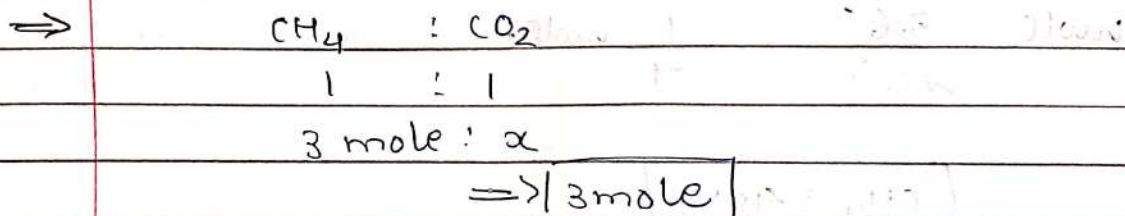 ⇒ CH₄ : CO₂
1 : 1
3 mole : x
=> 3mole